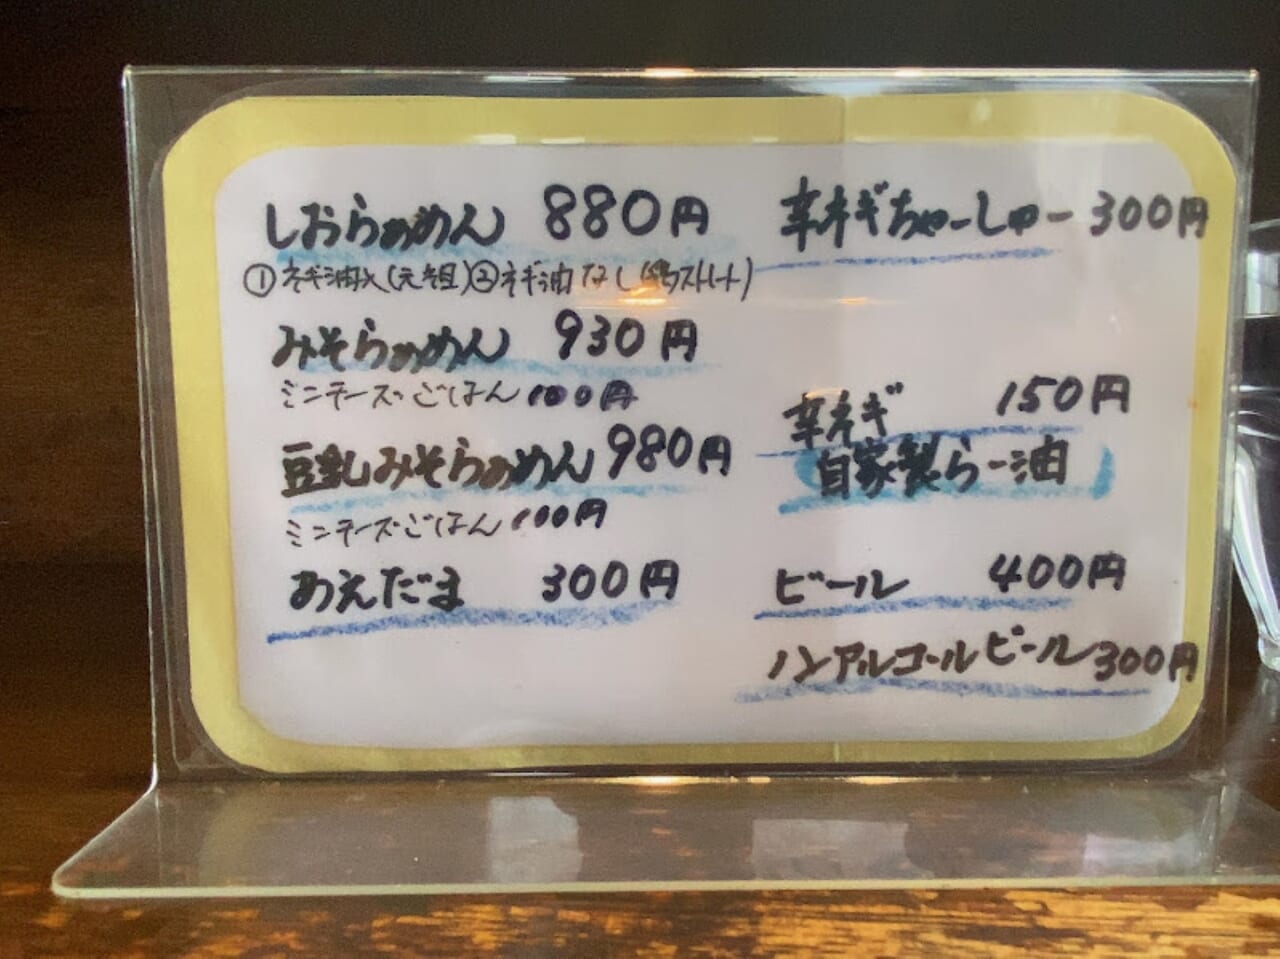 しおらぁめん 880円
①ネギ油入(元祖)②ネギ油なし(鶏ストレート)
みそらぁめん 930円
ミニチーズごはん 100円
豆乳みそらぁめん 980円
ミニチーズごはん 100円
あえだま 300円
辛ネギちゃーしゅー 300円
辛ネギ 150円
自家製らー油
ビール 400円
ノンアルコールビール 300円